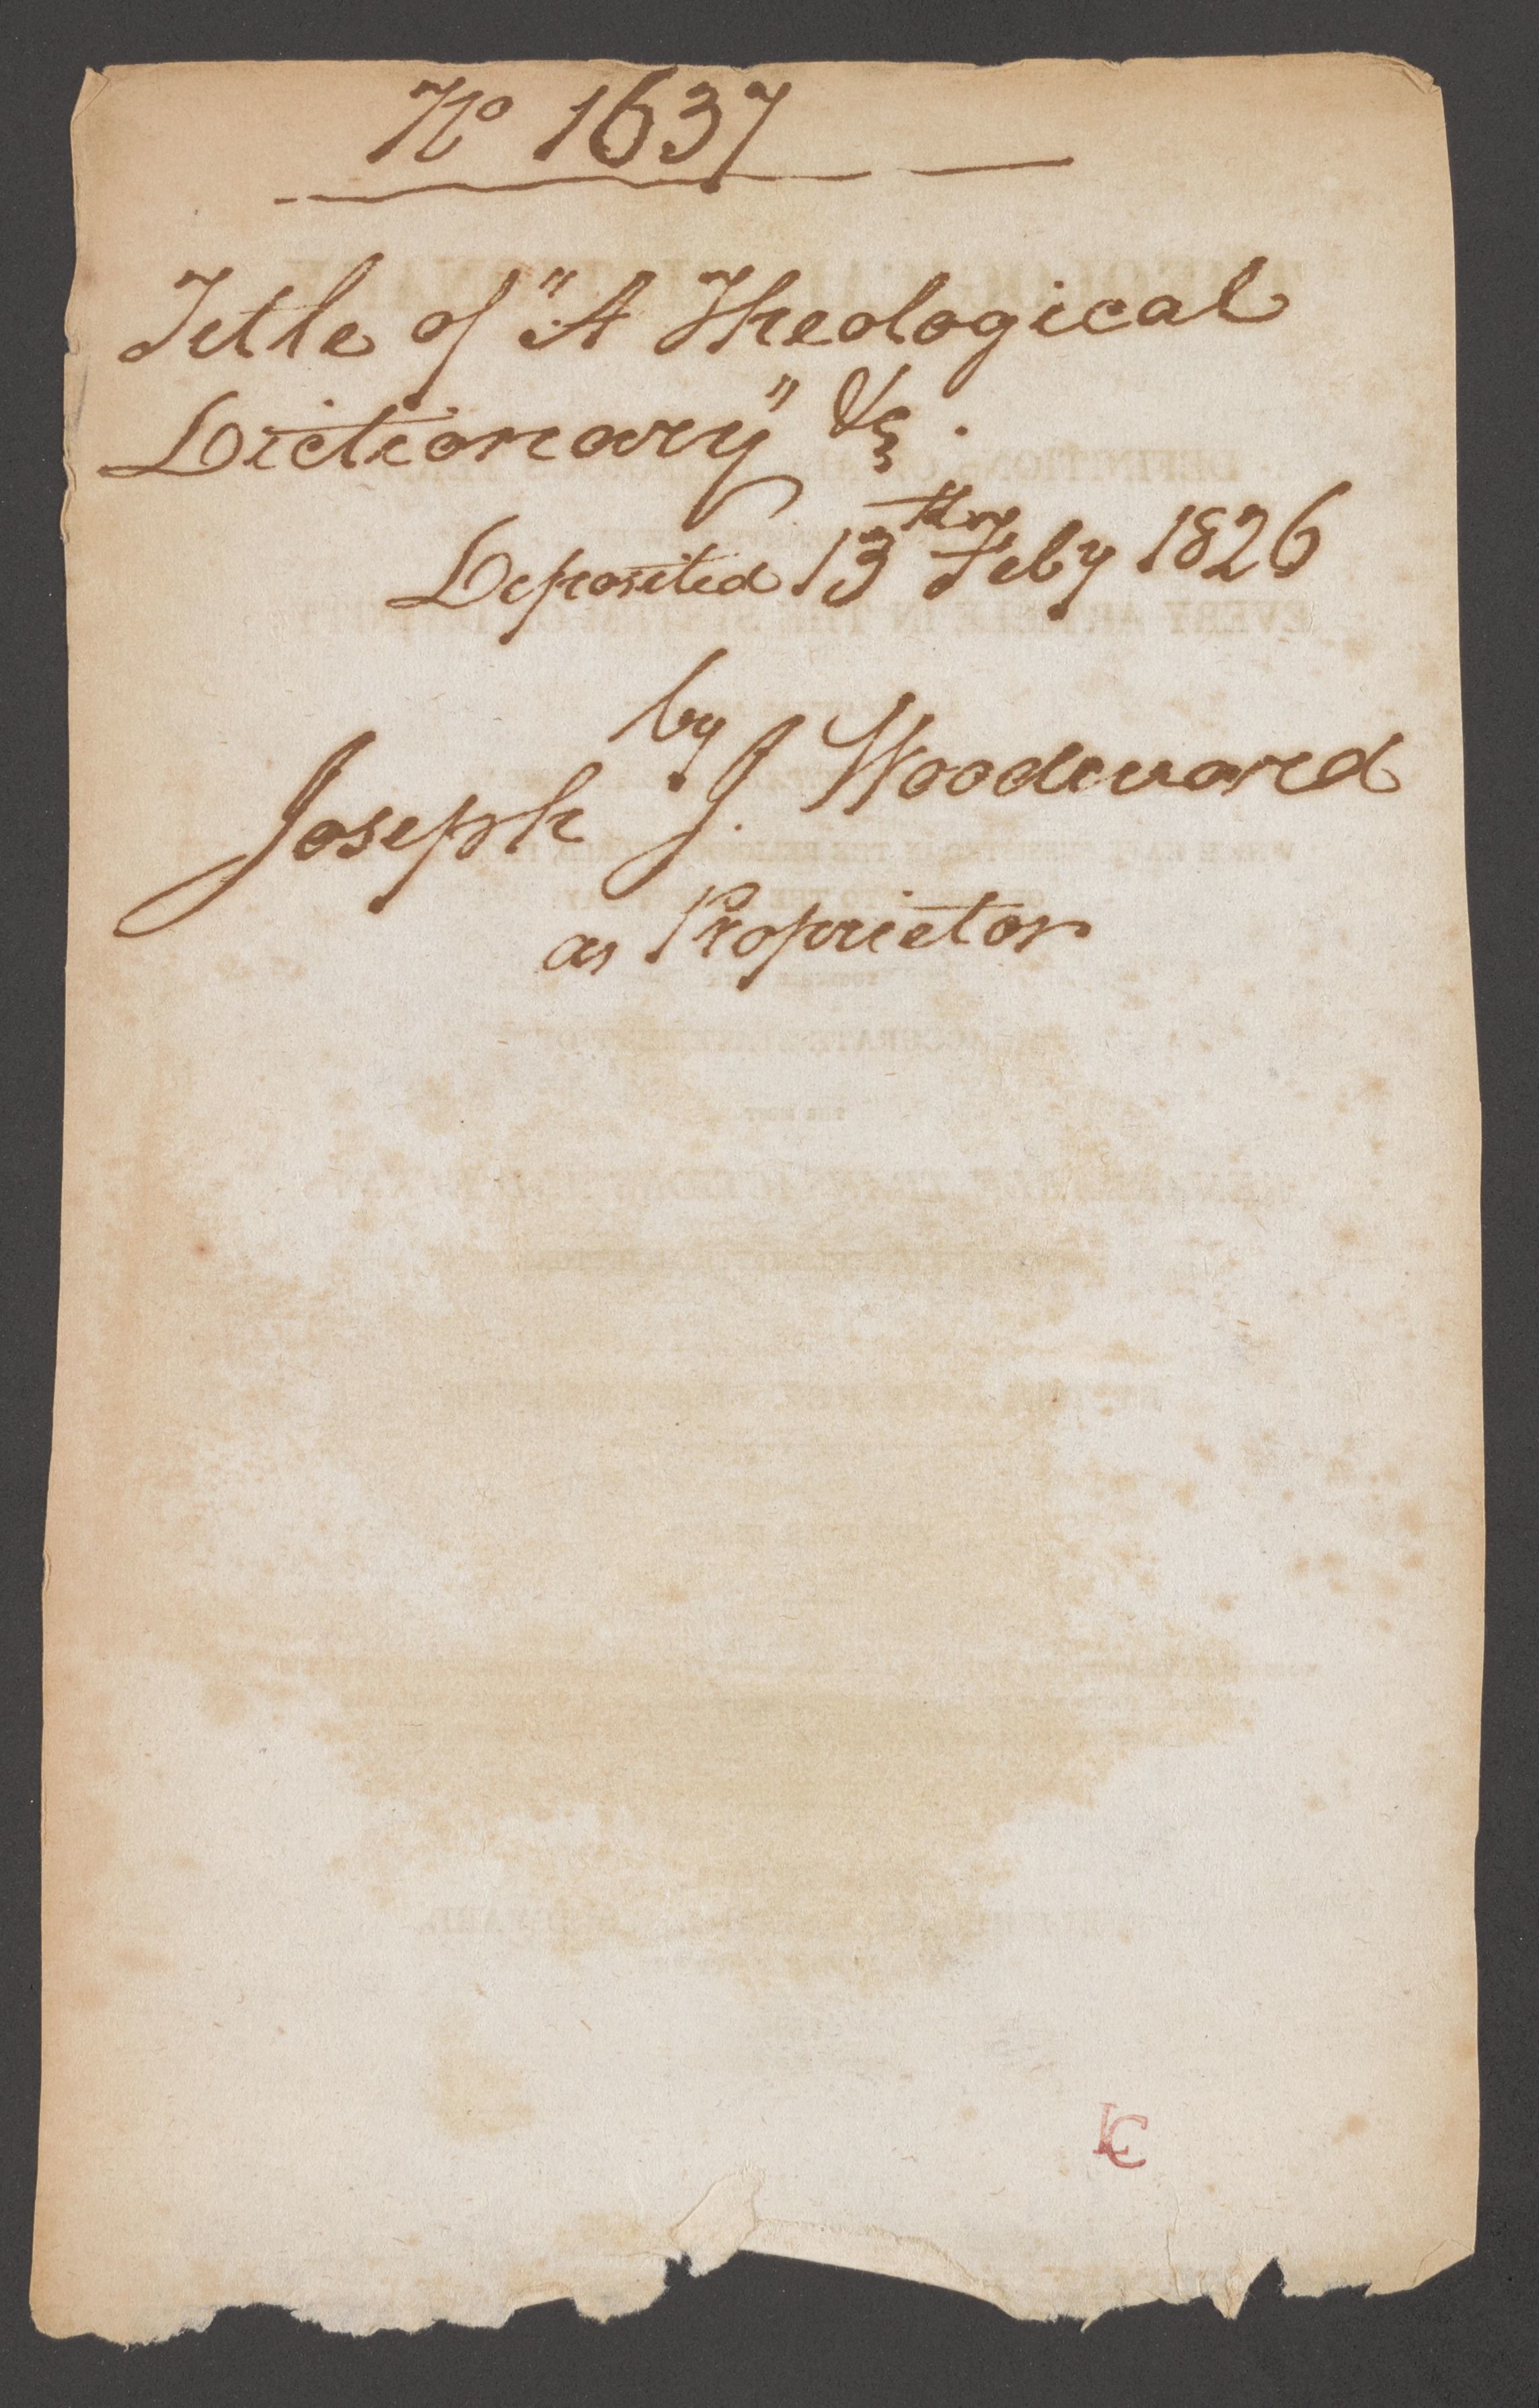 No 1637
Title of "A Theological
Dictionary" &c.
Deposited 13th Feby 1826
by
Joseph J. Woodward
as Proprietor
LC